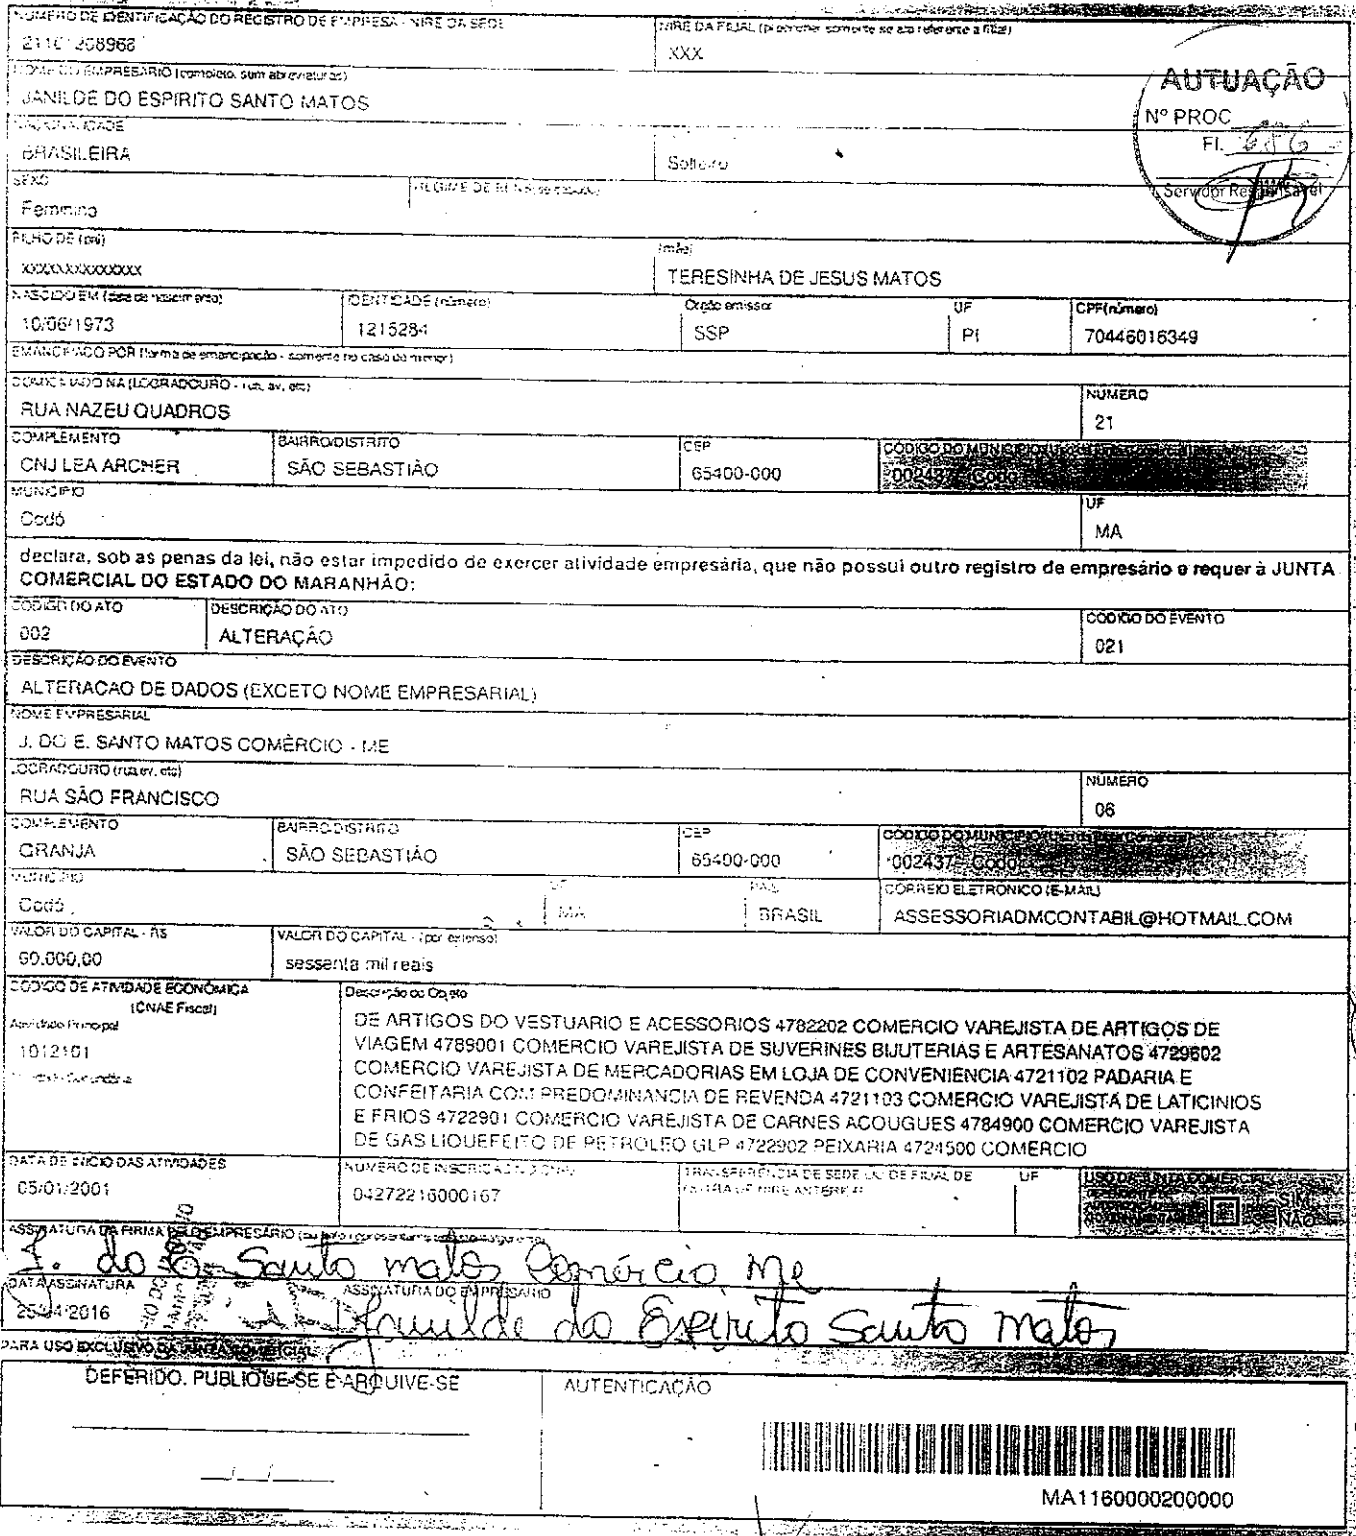 NÚMERO DE IDENTIFICAÇÃO DO REGISTRO DE EMPRESA - NIRE DA SEDE
NIRE DA FILIAL (preencher somente se ato referente a filial)
XXX
NOME DO EMPRESÁRIO (completo, sem abreviaturas)
JANILDE DO ESPIRITO SANTO MATOS
AUTUAÇÃO
Nº PROC
Fl.
Servidor Responsável
NACIONALIDADE
BRASILEIRA
Solteiro
SEXO
Feminino
REGIME DE BENS
FILHO DE (pai)
XXXXXXXXXXXXXX
(mãe)
TERESINHA DE JESUS MATOS
NASCIDO EM (data de nascimento)
10/06/1973
IDENTIDADE (número)
1215284
Orgão emissor
SSP
UF
PI
CPF(número)
70446016349
EMANCIPADO POR (forma de emancipação - somente no caso de menor)
DOMICILIADO NA (LOGRADOURO - rua, av, etc)
RUA NAZEU QUADROS
NÚMERO
21
COMPLEMENTO
CNJ LEA ARCHER
BAIRRO/DISTRITO
SÃO SEBASTIÃO
CEP
65400-000
CÓDIGO DO MUNICIPIO
002437 - Codó
MUNICÍPIO
Codó
UF
MA
declara, sob as penas da lei, não estar impedido de exercer atividade empresária, que não possui outro registro de empresário e requer à JUNTA
COMERCIAL DO ESTADO DO MARANHÃO:
CÓDIGO DO ATO
002
DESCRIÇÃO DO ATO
ALTERAÇÃO
CÓDIGO DO EVENTO
021
DESCRIÇÃO DO EVENTO
ALTERACAO DE DADOS (EXCETO NOME EMPRESARIAL)
NOME EMPRESARIAL
J. DO E. SANTO MATOS COMÉRCIO - ME
LOGRADOURO (rua,av, etc)
RUA SÃO FRANCISCO
NÚMERO
06
COMPLEMENTO
GRANJA
BAIRRO/DISTRITO
SÃO SEBASTIÃO
CEP
65400-000
CÓDIGO DO MUNICIPIO
002437 - Codó
MUNICÍPIO
Codó
UF
MA
PAÍS
BRASIL
CORREIO ELETRÔNICO (E-MAIL)
ASSESSORIADMCONTABIL@HOTMAIL.COM
VALOR DO CAPITAL - R$
60.000,00
VALOR DO CAPITAL - (por extenso)
sessenta mil reais
CÓDIGO DE ATIVIDADE ECONÔMICA
(CNAE Fiscal)
Atividade Principal
1012101
Atividade Secundária
Descrição do Objeto
DE ARTIGOS DO VESTUARIO E ACESSORIOS 4782202 COMERCIO VAREJISTA DE ARTIGOS DE
VIAGEM 4789001 COMERCIO VAREJISTA DE SUVERINES BIJUTERIAS E ARTESANATOS 4729602
COMERCIO VAREJISTA DE MERCADORIAS EM LOJA DE CONVENIENCIA 4721102 PADARIA E
CONFEITARIA COM PREDOMINANCIA DE REVENDA 4721103 COMERCIO VAREJISTA DE LATICINIOS
E FRIOS 4722901 COMERCIO VAREJISTA DE CARNES ACOUGUES 4784900 COMERCIO VAREJISTA
DE GAS LIQUEFEITO DE PETROLEO GLP 4722902 PEIXARIA 4724500 COMERCIO
DATA DE INÍCIO DAS ATIVIDADES
05/01/2001
NÚMERO DE INSCRIÇÃO NO CNPJ
04272216000167
TRANSFERÊNCIA DE SEDE OU DE FILIAL DE
OUTRA UF NIRE ANTERIOR
UF
USO DA JUNTA COMERCIAL
SIM
NÃO
ASSINATURA DA FIRMA PELO EMPRESÁRIO
J. do E. Santo matos Comércio Me
DATA ASSINATURA
ASSINATURA DO EMPRESÁRIO
Janilde do Espirito Santo Matos
PARA USO EXCLUSIVO DA JUNTA COMERCIAL
DEFERIDO. PUBLIQUE-SE E ARQUIVE-SE
AUTENTICAÇÃO
MA1160000200000